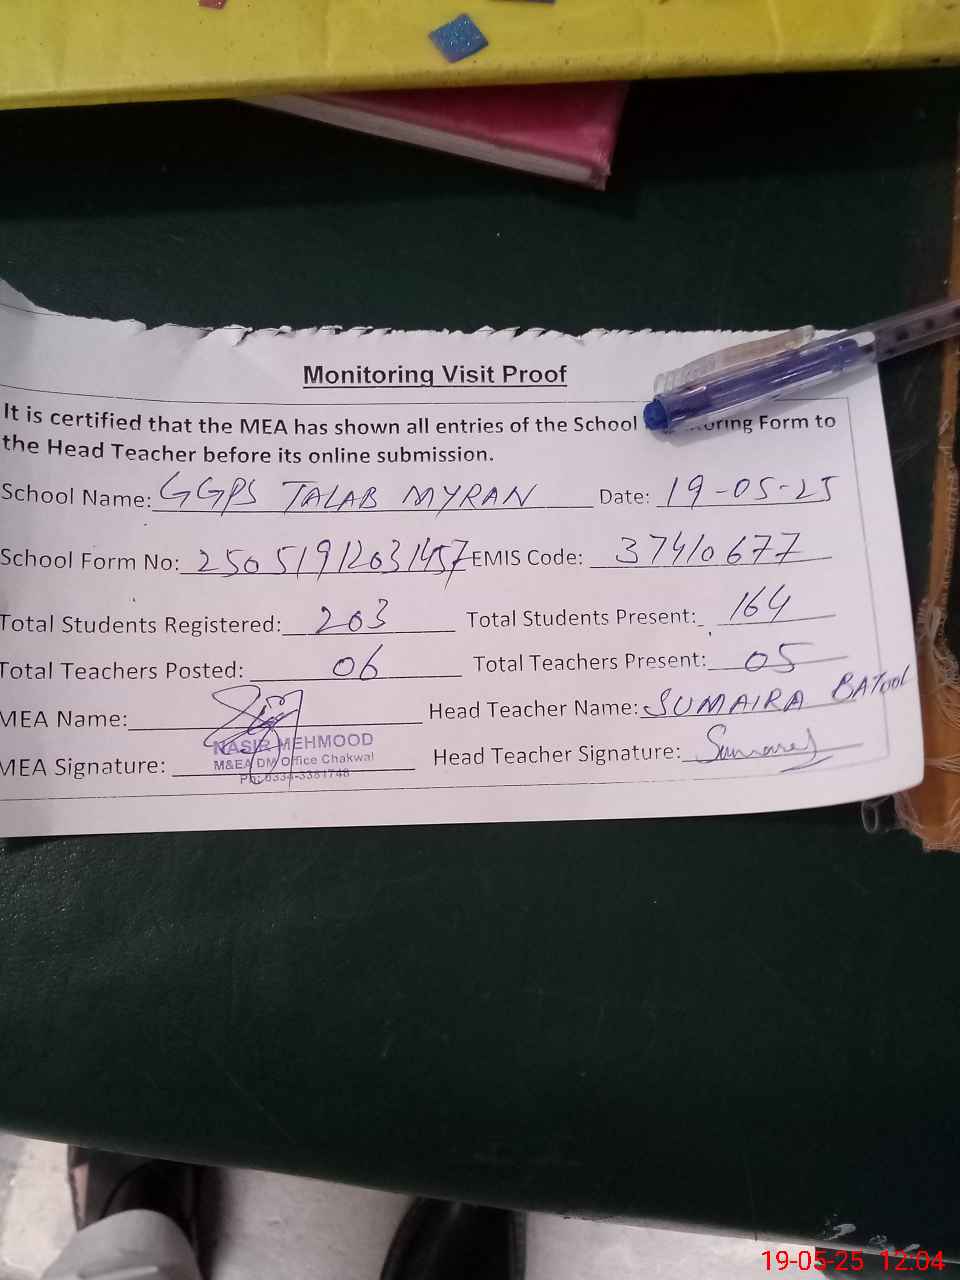 Monitoring Visit Proof
It is certified that the MEA has shown all entries of the School Form to
the Head Teacher before its online submission.
School Name: GGPS TALAB MYRAN Date: 19-05-25
School Form No: 25051912031457 EMIS Code: 37410677
Total Students Registered: 203 Total Students Present: 164
Total Teachers Posted: 06 Total Teachers Present: 05
MEA Name: Head Teacher Name: SUMAIRA BATOOL
NASIR MEHMOOD
MEA Signature: Head Teacher Signature:
M&EA DM Office Chakwal
Ph: 0334-3381748
19-05-25 12:04